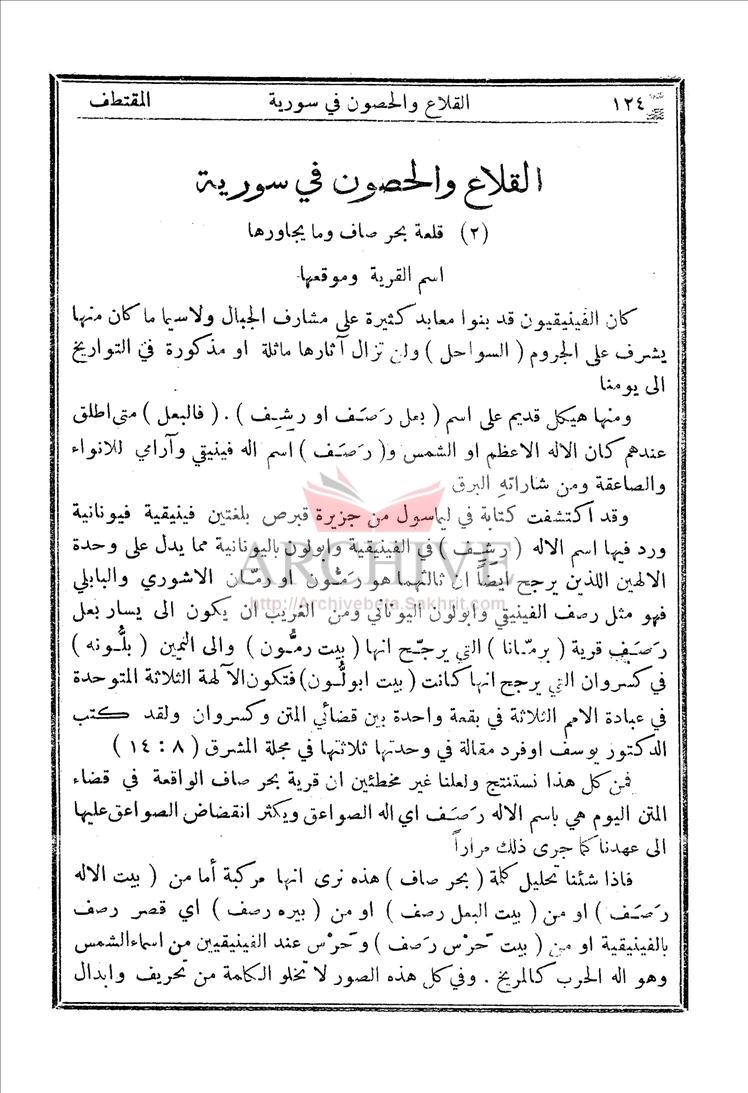 ١٢٤ القلاع والحصون في سورية المقتطف
القلاع والحصون في سورية
(٢) قلعة بحر صاف وما يجاورها
اسم القرية وموقعها
كان الفينيقيون قد بنوا معابد كثيرة على مشارف الجبال ولاسيما ما كان منها
يشرف على الجروم ( السواحل ) ولن تزال آثارها ماثلة او مذكورة في التواريخ
الى يومنا
ومنها هيكل قديم على اسم ( بعل رَصَف او رشِف ) . ( فالبعل ) متى اطلق
عندهم كان الاله الاعظم او الشمس و( رَصَف ) اسم اله فينيقي وآرامي للانواء
والصاعقة ومن شاراتهِ البرق
وقد اكتشفت كتابة في ليماسول من جزيرة قبرص بلغتين فينيقية فيونانية
ورد فيها اسم الاله ( رشِف ) في الفينيقية وابولون باليونانية مما يدل على وحدة
الالهين اللذين يرجح ايضاً ان ثالثهما هو رَمُّون او رمّان الاشوري والبابلي
فهو مثل رصف الفينيقي وابولون اليوناني ومن الغريب ان يكون الى يسار بعل
رَصَف قرية ( برمّانا ) التي يرجّح انها ( بيت رمُّون ) والى اليمين ( بلُّونه )
في كسروان التي يرجح انها كانت ( بيت ابولُّون ) فتكون الآلهة الثلاثة المتوحدة
في عبادة الامم الثلاثة في بقعة واحدة بين قضائي المتن وكسروان ولقد كتب
الدكتور يوسف اوفرد مقالة في وحدتها ثلاثتها في مجلة المشرق ( ٨ : ١٤ )
فمن كل هذا نستنتج ولعلنا غير مخطئين ان قرية بحر صاف الواقعة في قضاء
المتن اليوم هي باسم الاله رَصَف اي اله الصواعق ويكثر انقضاض الصواعق عليها
الى عهدنا كما جرى ذلك مراراً
فاذا شئنا تحليل كلمة ( بحر صاف ) هذه نرى انها مركبة أما من ( بيت الاله
رَصَف ) او من ( بيت البعل رصف ) او من ( بيره رصف ) اي قصر رصف
بالفينيقية او من ( بيت حَرْس رَصف ) وحَرْس عند الفينيقيين من اسماء الشمس
وهو اله الحرب كالمريخ . وفي كل هذه الصور لا تخلو الكلمة من تحريف وابدال
ARCHIVE
http://Archivebeta.Sakhrit.com